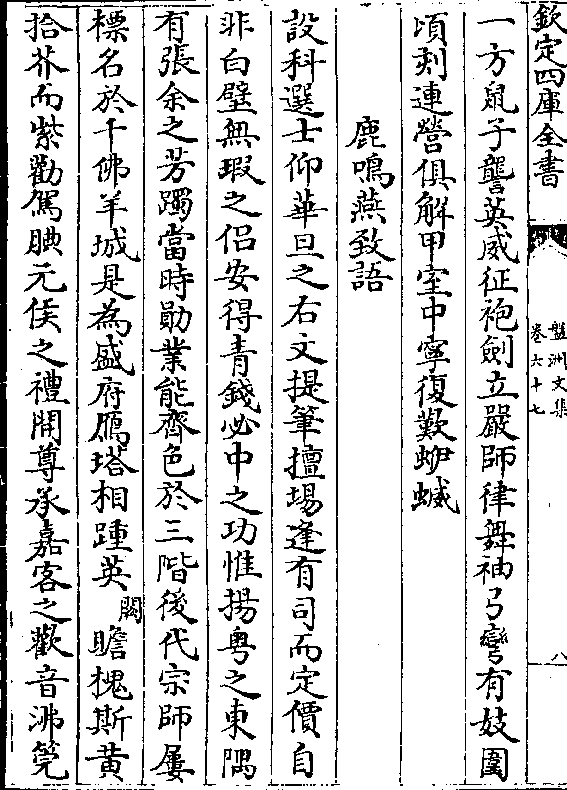 欽定四庫全書
盤洲文集
卷六十七
八
一方鼠子讋英威征袍劍立嚴師律舞袖弓彎有妓圍
頃刻連營俱解甲室中寧復歎蛜蝛
鹿鳴燕致語
設科選士仰華旦之右文提筆擅場逢有司而定價自
非白璧無瑕之侣安得青錢必中之功惟揚粤之東隅
有張余之芳躅當時勛業能齊色於三階後代宗師屢
標名於千佛羊城是為盛府鴈塔相踵英闕瞻槐斯黄
拾芥而紫勸駕腆元侯之禮開尊承嘉客之歡音沸筦